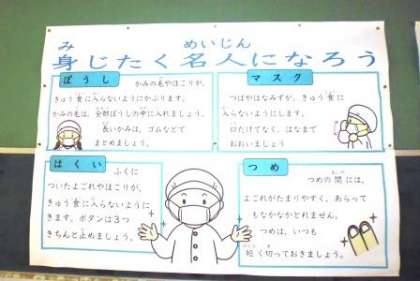 み めいじん
身じたく名人になろう
ぼうし
かみの毛やほこりが、
きゅう食に入らないようにかぶります。
かみの毛は、全部ぼうしの中に入れましょう。
長いかみは、ゴムなどで
まとめましょう。
マスク
つばやはなみずが、きゅう食に
入らないようにします。
口だけでなく、はなまで
おおいましょう
はくい
ふくに
ついたよごれやほこりが、
きゅう食に入らないように
きます。ボタンは3つ
きちんと止めましょう。
つめ
つめの間には、
よごれがたまりやすく、あらって
もなかなかとれません。
つめは、いつも
短く切っておきましょう。